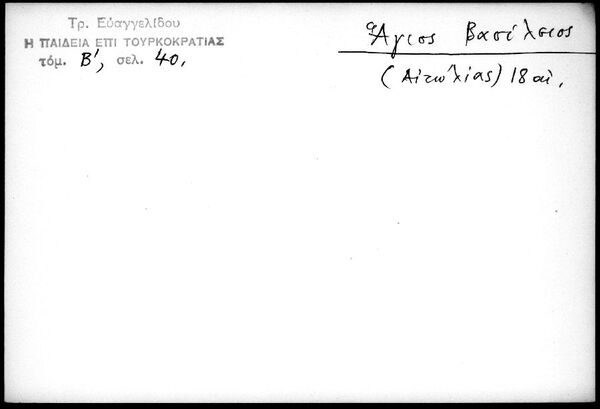 Τρ. Εὐαγγελίδου
Η ΠΑΙΔΕΙΑ ΕΠΙ ΤΟΥΡΚΟΚΡΑΤΙΑΣ
τόμ. Β', σελ. 40.
Ἅγιος Βασίλειος
(Αἰτωλίας) 18 αἰ.